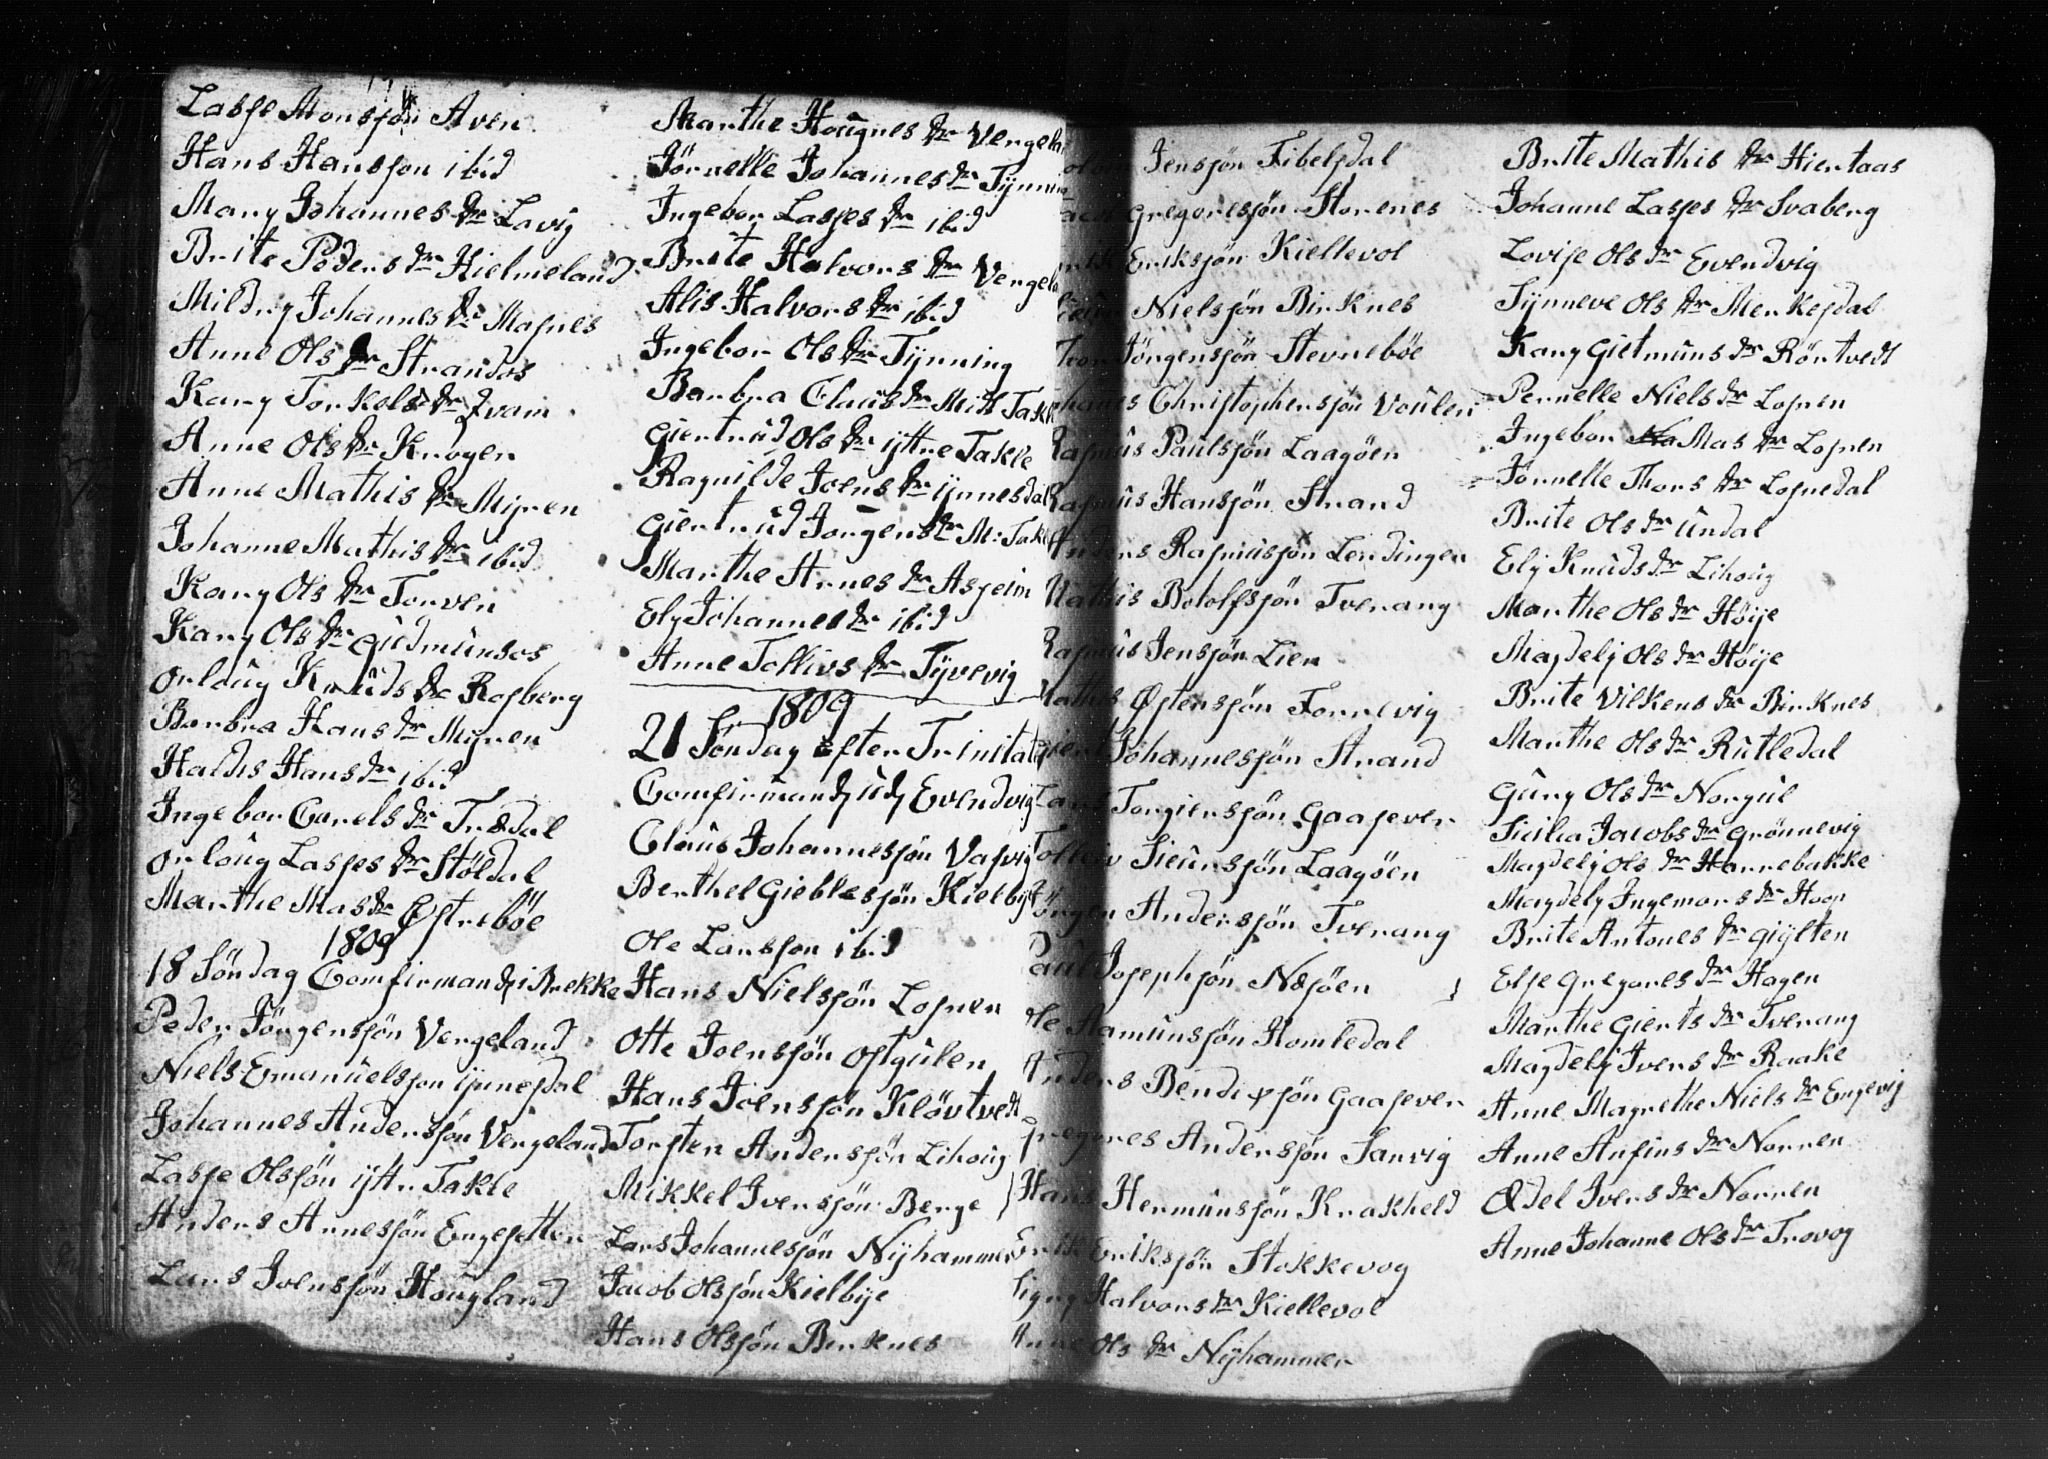 Lasse Monssøn Aven
Hans Hanssøn ibid
Mary Johannes dr Lavig
Brite Peders dr Hielmeland
Mildry Johannes dr Masnes
Anne Ols dr Strandos
Kary Torkels dr Qvam
Anne Ols dr Kroger
Anne Mathis dr Myren
Johanne Mathis dr ibid
Kary Ols dr Torven
Kary Ols dr Gudmunsos
Orloug Knuds dr Rosberg
Barbra Hans dr Myren
Haldis Hans dr ibid
Ingebor Carels dr Trædal
Orloug Lasses dr Støldal
Marthe Mas dr Østrebøe
1809
18 Søndag Comfirmand, i Brekke
Peder Jørgenssøn Vergeland
Niels Emanuelsson ijnnesdal
Johannes Anderssøn Vergeland
Lasse Olssøn ijttr Takle
Anders Arnesøn Engesetter
Lars Joenssøn Hougland
Marthe Hougnes dr Vergel
Jørnelle Johannes dr Tynning
Ingebor Lasses dr ibid
Brite Halvors dr Vergel
Alis Halvors dr ibid
Ingebor Ols dr Tynning
Barbra Claus dr Mitt Takl
Giertrud Ols dr ijttre Takle
Ragnilde Joens dr ijnnesdal
Giertrud Jorgens dr M: Takl
Marthe Arnes dr Aspeim
Ely Johannes dr ibid
Anne Tollivs dr Tyvevig
1809
21 Søndag efter Trinitat
Comfirmand, ud, Evendvig
Claus Johannessøn Vasvig
Berthel Gieblesøn Kielbye
Ole Larsson ibid
Hans Nielssøn Losnen
Otte Joenssøn Ostgulen
Hans Joenssøn Kløvtvedt
Torsten Anderssøn Lihoug
Mikkel Iverssøn Berge
Lars Johannessøn Nyhammer
Jacob Olssøn Kielbye
Hans Olssøn Birknes
Jenssøn Fibelsdal
Gregoressøn Storenes
Erikssøn Kiellevol
Nielssøn Birknes
Jørgenssøn Stevnebøe
Christophersøn Voulen
Rasmus Paulssøn Laagøen
Rasmus Hanssøn Strand
Anders Rasmussøn Lendingen
Mathis Botolfssøn Tverang
Rasmus Jenssøn Lien
Mathis Østenssøn Forrevig
Johannessøn Strand
Lars Torgierssøn Gaasever
Tolleiv Sieurssøn Laagøen
Jørgen Anderssøn Tverang
Paul Josephsøn Næsøen
Ole Aamunssøn Homledal
Anders Bendixsøn Gaasever
Gregores Anderssøn Sanvig
Hans Hermunssøn Krakheld
Erik Erikssøn Stokkevog
Signy Halvors dr Kiellevol
Anne Ols dr Nyhammer
Brite Mathis dr Hiertaas
Johanne Lasses dr Svaberg
Lovise Ols dr Evendvig
Synneve Ols dr Merkesdal
Kary Gietmuns dr Røntvedt
Pernelle Niels dr Losnen
Ingebor Mas dr Losnen
Jørnelle Thors dr Losnedal
Brite Ols dr Undal
Ely Knuds dr Lihoug
Marthe Ols dr Høije
Magdely Ols dr Høije
Brite Vilkens dr Birknes
Marthe Ols dr Rutledal
Gury Ols dr Norgul
Sicilia Jacobs dr Grønnevig
Magdely Ols dr Hannebakke
Magdely Ingemars dr Hoop
Brite Antones dr Giylten
Else Gregores dr Hagen
Marthe Gierts dr Tverang
Magdely Ivers dr Raake
Anne Magrethe Niels dr Engevig
Anne Anfins dr Norren
Ædel Ivers dr Norren
Anne Johanne Ols dr Trovog